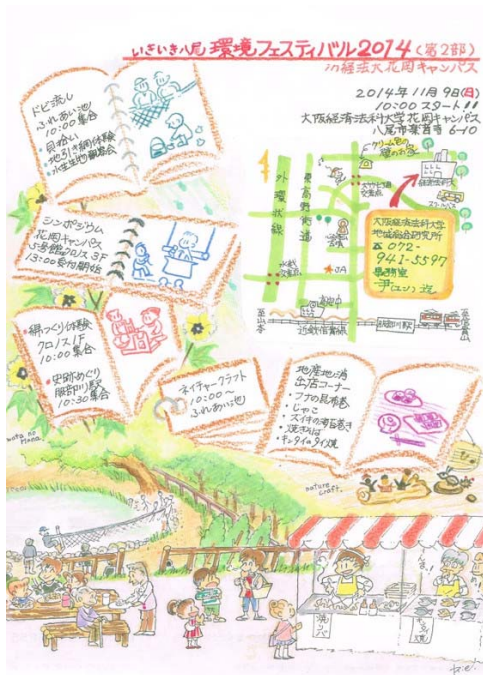 いきいき八尾 環境フェスティバル2014(第2部)
in 経法大花岡キャンパス
2014年11月9日(日)
10:00 スタート!!
大阪経済法科大学花岡キャンパス
八尾市楽音寺 6-10
ドビ流し
ふれあい池
10:00集合
・貝拾い
・地引き網体験
・水生生物観察会
シンポジウム
花岡キャンパス
5号館クロノス3F
13:00受付開始
・綿つくり体験
クロノス1F
10:00集合
・史跡めぐり
服部川駅
10:30集合
ネイチャークラフト
10:00~
ふれあい池
地産地消
出店コーナー
・フナの昆布巻
・じゃこ
・焼きそば
・キンタイのタイ焼
外環状線
東高野街道
経法大
スクールバス
JA
大阪経済法科大学
地域総合研究所
☎ 072-
941-5597
事務室
尹(ユン)迄
至山本
服部川駅
wata no Hana
nature craft.